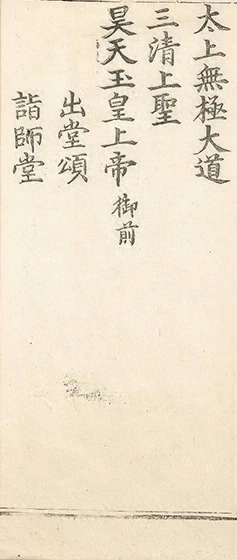 太上無極大道
三清上聖
昊天玉皇上帝御前
出堂頌
詣師堂